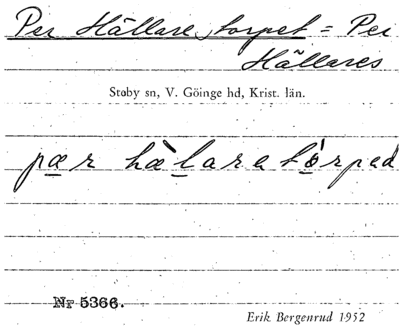 Per Hällare, torpet = Per
Hällares
Stoby sn, V. Göinge hd, Krist. län.
pær hæ̀lareto̍rped
Nr 5366.
Erik Bergenrud 1952